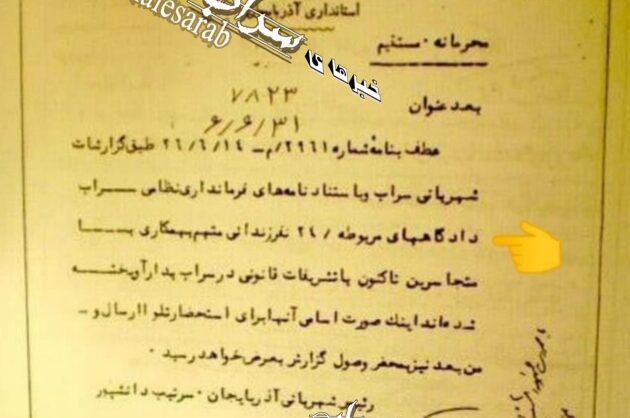 استانداری آذربایجان
alesarab
خبرهای سراب
محرمانه · مستقیم
۷۸۲۳
بعد عنوان
۶/۶/۳۱
عطف بنامهٔ شماره ۲۹۶۱/م ـ ۲۶/۶/۱۴ طبق گزارشات
شهربانی سراب و باستناد نامه‌های فرمانداری نظامی ســراب
دادگاههای مربوطه / ۲۴ نفر زندانی متهم بهمکاری بــا
متجاسرین تاکنون با تشریفات قانونی در سراب بدار آویختــه
شده‌اند اینك صورت اسامی آنها برای استحضار تلوا ارسال و ـ
من بعد نیز بمحض وصول گزارش بعرض خواهد رسید ·
رئیس شهربانی آذربایجان · سرتیپ دانشپور